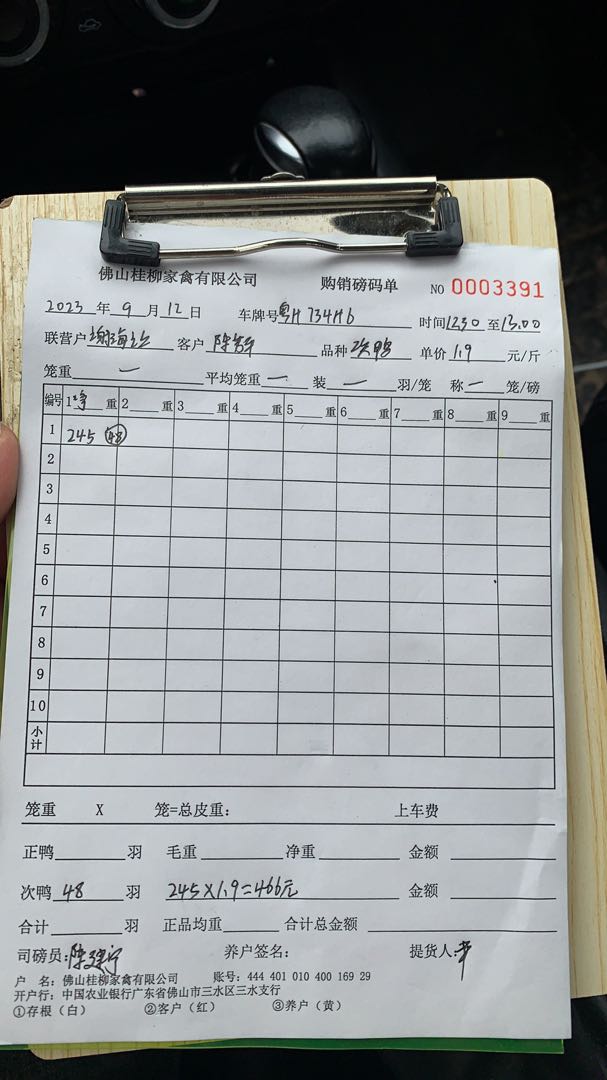 佛山桂柳家禽有限公司 购销磅码单 NO 0003391
2023 年 9 月 12 日 车牌号 粤H734H6 时间 1230 至 13.00
联营户 谢海 客户 陈 品种 次鸭 单价 1.9 元/斤
笼重 一 平均笼重 一 装 一 羽/笼 称 一 笼/磅
编号 1 净 重 2 重 3 重 4 重 5 重 6 重 7 重 8 重 9 重
1 245 48
2
3
4
5
6
7
8
9
10
小计
笼重 X 笼=总皮重: 上车费
正鸭 羽 毛重 净重 金额
次鸭 48 羽 245×1.9=466元 金额
合计 羽 正品均重 合计总金额
司磅员: 陈建宁 养户签名: 提货人:
户 名: 佛山桂柳家禽有限公司 账号: 444 401 010 400 169 29
开户行: 中国农业银行广东省佛山市三水区三水支行
①存根(白) ②客户(红) ③养户(黄)